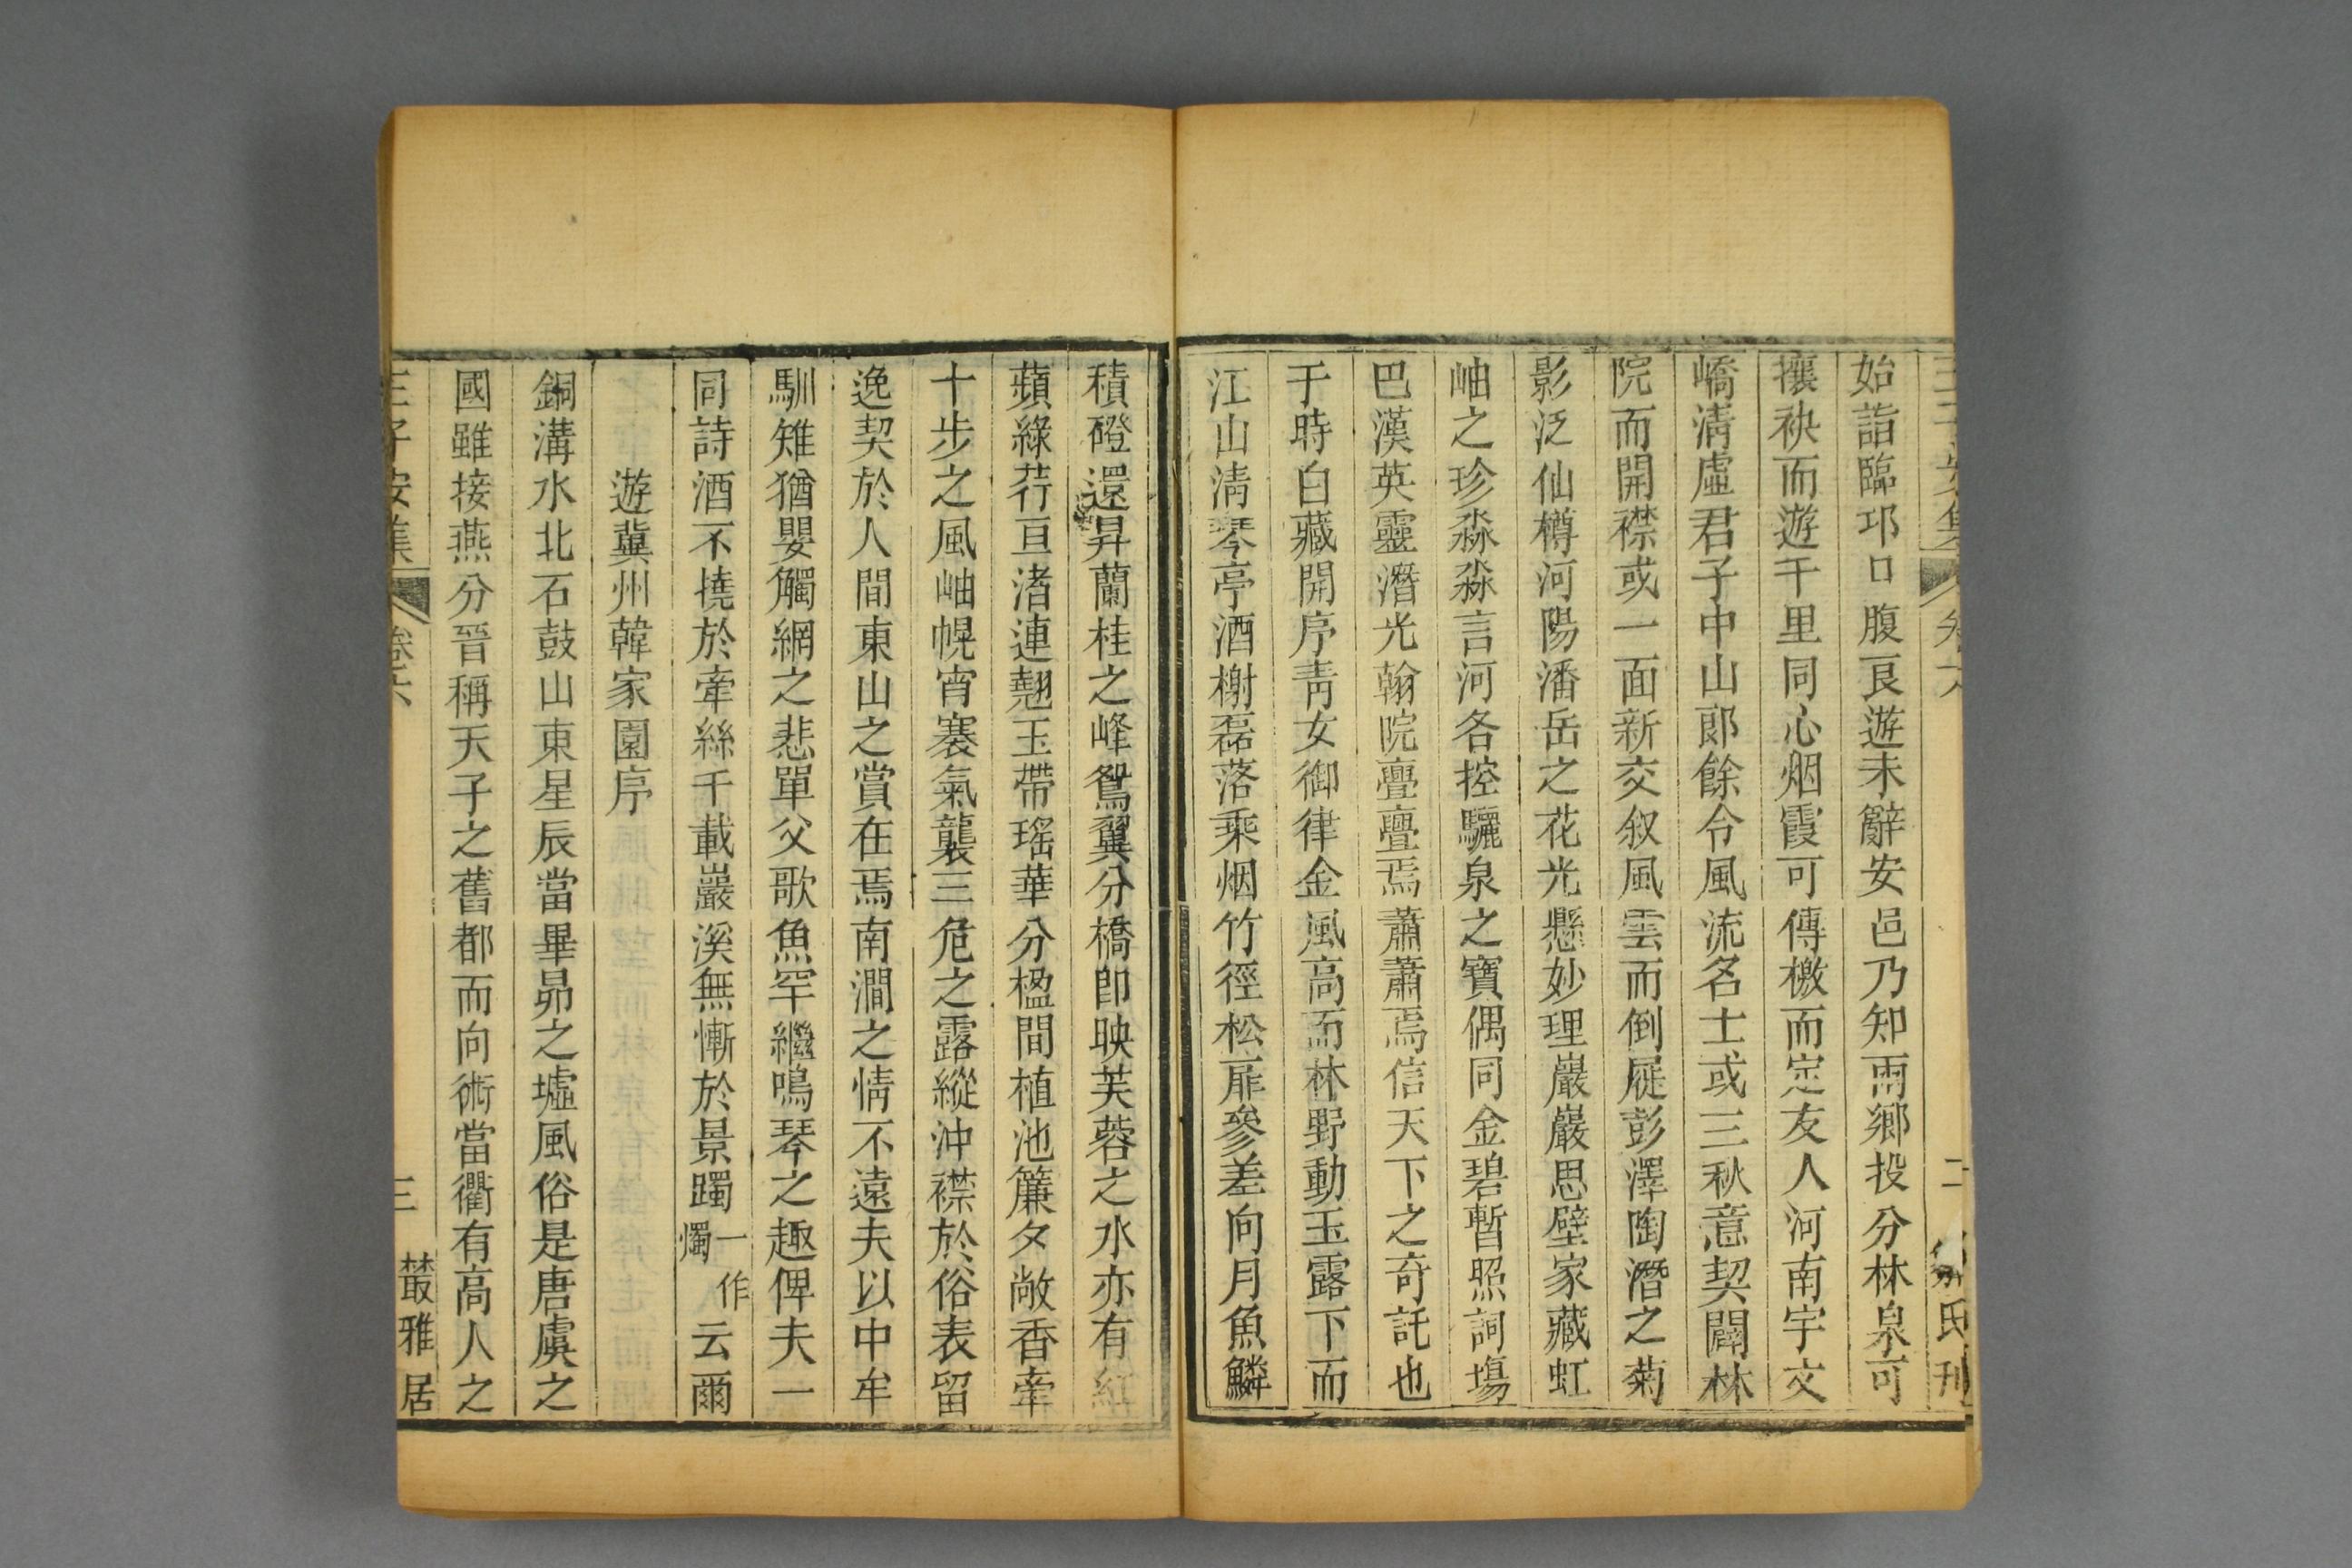 始詣臨邛口腹良遊未辭安邑乃知兩鄉投分林泉可
攘袂而遊千里同心烟霞可傳檄而定友人河南宇文
嶠清虛君子中山郎餘令風流名士或三秋意契闢林
院而開襟或一面新交叙風雲而倒屣彭澤陶潛之菊
影泛仙樽河陽潘岳之花光懸妙理巖巖思壁家藏虹
岫之珍淼淼言河各控驪泉之寶偶同金碧暫照詞塲
巴漢英靈潛光翰院亹亹焉蕭蕭焉信天下之奇託也
于時白藏開序青女御律金風高而林野動玉露下而
江山清琴亭酒榭磊落乘烟竹徑松扉參差向月魚鱗
積磴還昇蘭桂之峰鴛翼分橋卽映芙蓉之水亦有紅
蘋綠荇亘渚連翹玉帶瑤華分楹間植池簾夕敞香牽
十步之風岫幌宵褰氣襲三危之露縱沖襟於俗表留
逸契於人間東山之賞在焉南澗之情不遠夫以中牟
馴雉猶嬰觸網之悲單父歌魚罕繼鳴琴之趣俾夫一
同詩酒不撓於牽絲千載巖溪無慚於景躅一作燭云爾
遊冀州韓家園序
銅溝水北石鼓山東星辰當畢昴之墟風俗是唐虞之
國雖接燕分晉稱天子之舊都而向術當衢有高人之
王子安集 卷六 三 藂雅居